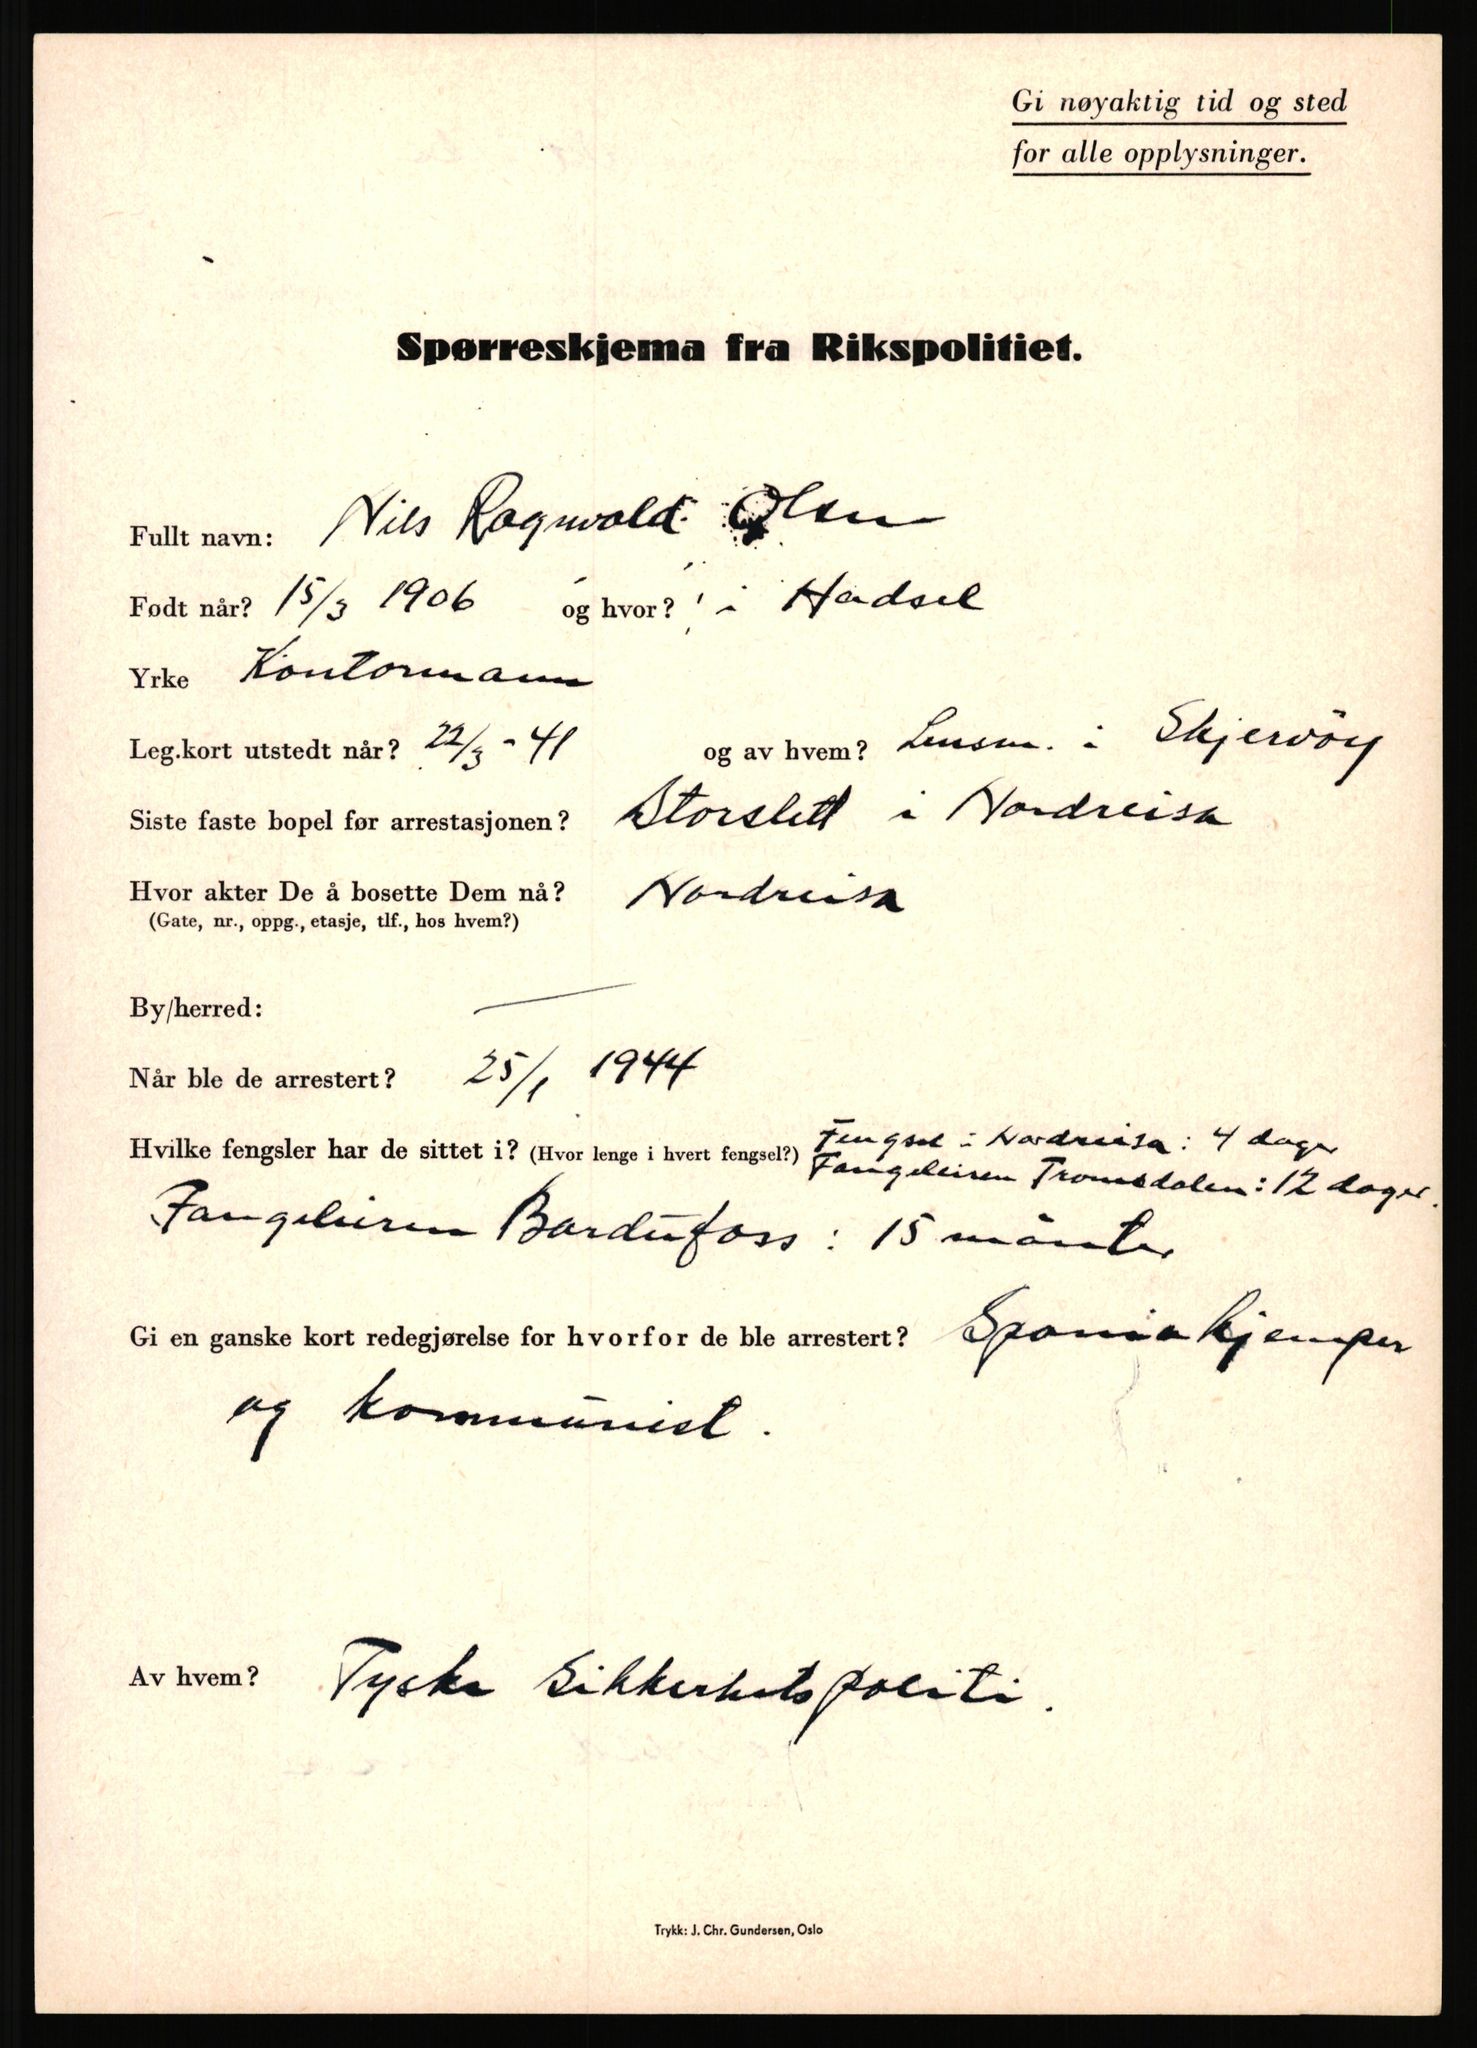 Gi nøyaktig tid og sted
for alle opplysninger.
Spørreskjema fra Rikspolitiet.
Fullt navn: Nils Ragnvald Olsen
Født når? 15/3 1906 og hvor? i Hadsel
Yrke Kontormann
Leg.kort utstedt når? 22/3 - 41 og av hvem? Lensm. i Skjervöy
Siste faste bopel før arrestasjonen? Storslett i Nordreisa
Hvor akter De å bosette Dem nå? Nordreisa
(Gate, nr., oppg., etasje, tlf., hos hvem?)
By/herred: —
Når ble de arrestert? 25/1 1944
Hvilke fengsler har de sittet i? (Hvor lenge i hvert fengsel?) Fengsel i Nordreisa: 4 dager
Fangeleiren Tromsdalen: 12 dager.
Fangeleiren Bardufoss: 15 månter
Gi en ganske kort redegjørelse for hvorfor de ble arrestert? Spaniakjemper
og kommunist.
Av hvem? Tyske Sikkerhetspoliti.
Trykk: J. Chr. Gundersen, Oslo